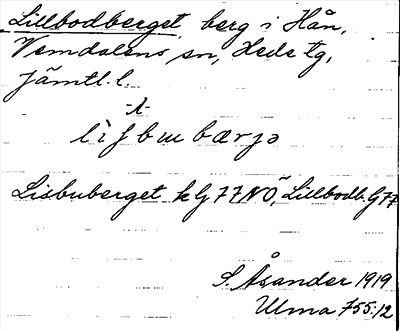 Lillbodberget, berg i Hån,
Vemdalens sn, Hede tg,
Jämtl. l.
-λ-
lìſbɯbærjə
Lisbuberget kG77NÖ, Lillbodb. G77
S. Åsander 1919
Ulma 755:12